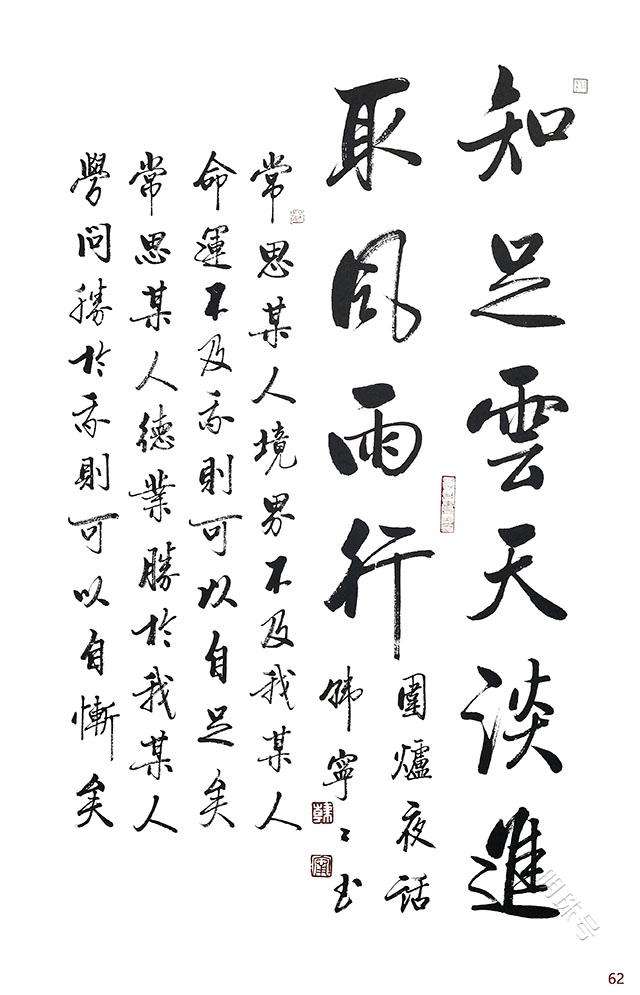 知足雲天谈進
取风雨行
圍爐夜話
韩寧々书
韓
寧
常思某人境界不及我某人
命運不及我則可以自足矣
常思某人德業勝於我某人
學問勝於我則可以自慚矣
明珠号
62